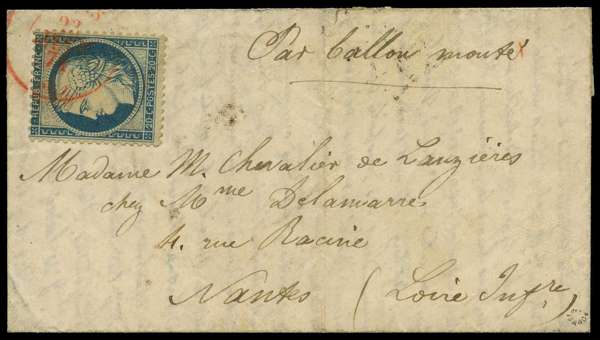 Par Ballon monté
REPUB. FRANC.
20 C. POSTES 20 C.
Madame M. Chevalier de Lauzières
chez Mme Delamarre
4. rue Racine
Nantes (Loire Infre)